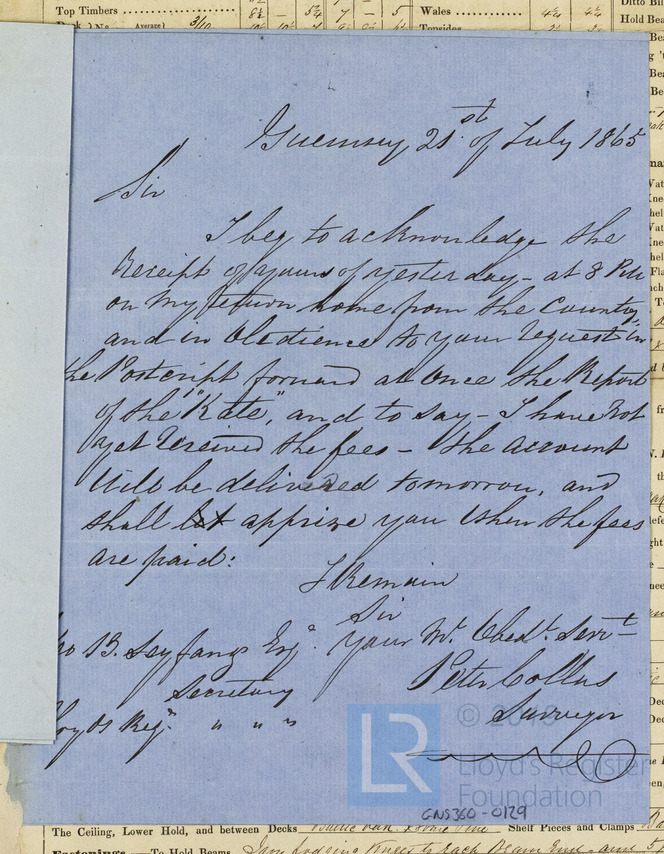 Top Timbers
Wales
Average
3/10
Topsides
Guernsey 21st of July 1865
Sir
I beg to acknowledge the
Receipt of yours of yesterday - at 8 PM
on my return home from the Country,
and in Obedience to your request in
the Postcript forward at Once the Report
of the "Kate", and to say - I have Not
yet Received the fees - the account
Will be delivered tomorrow, and
shall apprise you When the fees
are paid:
I Remain
Sir
your Mt. Obedt. Servt
B. Seyfang Esqe.
Peter Collas
Secretary
Surveyor
Regr. " " "
LR
© 20
Lloyd's Register
Foundation
GNS360-0129
The Ceiling, Lower Hold, and between Decks
Shelf Pieces and Clamps
Fastenings.—To Hold Beams